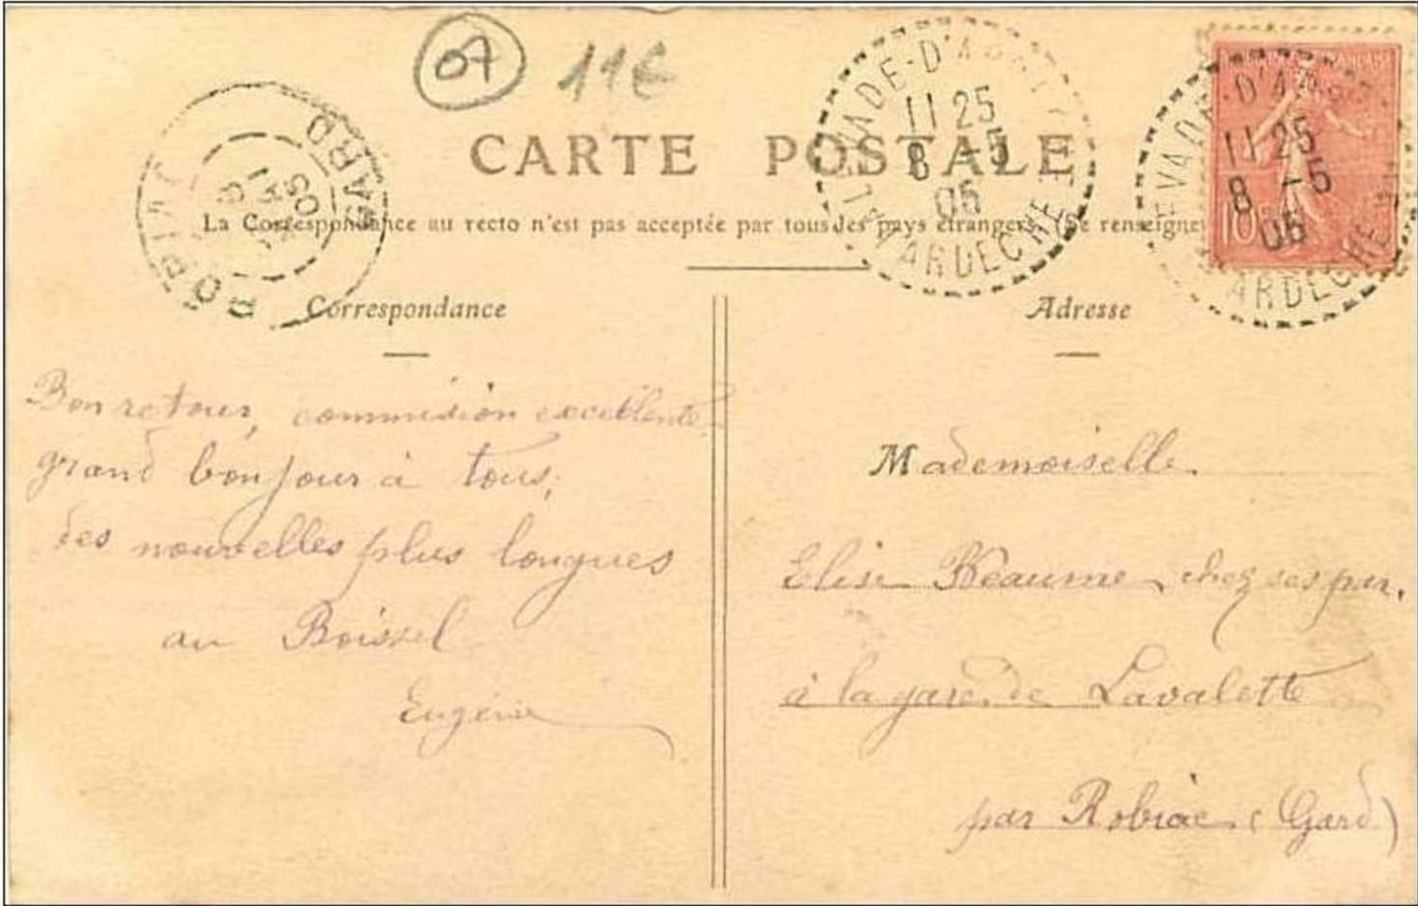 07 11€
CARTE POSTALE
La Correspondance au recto n'est pas acceptée par tous les pays étrangers (Se renseigner
11 25
8 - 5
05
ARDECHE
11 25
8 - 5
05
ARDECHE
10
ROBIAC
GARD
8
05
Correspondance
Bon retour, commission excellente,
grand bonjour à tous,
des nouvelles plus longues
au Boissel
Eugénie
Adresse
Mademoiselle
Elise Réaume chez ses par.
à la gare de Lavalette
par Robiac (Gard)